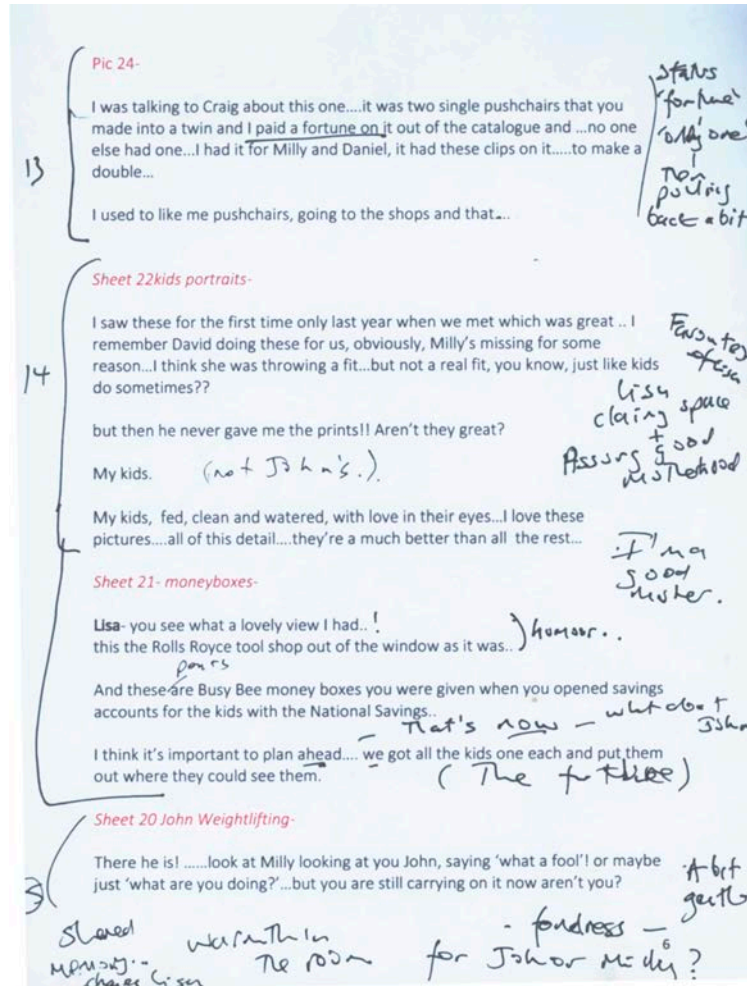 Pic 24-
I was talking to Craig about this one....it was two single pushchairs that you
made into a twin and I paid a fortune on it out of the catalogue and ...no one
else had one...I had it for Milly and Daniel, it had these clips on it.....to make a
double...
I used to like me pushchairs, going to the shops and that....
status
'fortune'
'only one'
back a bit
13
Sheet 22kids portraits-
I saw these for the first time only last year when we met which was great .. I
remember David doing these for us, obviously, Milly's missing for some
reason...I think she was throwing a fit...but not a real fit, you know, just like kids
do sometimes??
but then he never gave me the prints!! Aren't they great?
My kids. (not John's.).
My kids, fed, clean and watered, with love in their eyes...I love these
pictures....all of this detail....they're a much better than all the rest...
14
Lisa
space
+
good
I'm a
good
mother.
Sheet 21- moneyboxes-
Lisa- you see what a lovely view I had.. !
this the Rolls Royce tool shop out of the window as it was.. ) humour..
And these are Busy Bee money boxes you were given when you opened savings
accounts for the kids with the National Savings..
- That's now - what about
John
I think it's important to plan ahead.... we got all the kids one each and put them
out where they could see them. (The future)
Sheet 20 John Weightlifting-
There he is! ......look at Milly looking at you John, saying 'what a fool'! or maybe
just 'what are you doing?'...but you are still carrying on it now aren't you?
A bit
shared
memory..
warmth in
the room
- fondness -
for John or Milly?
6